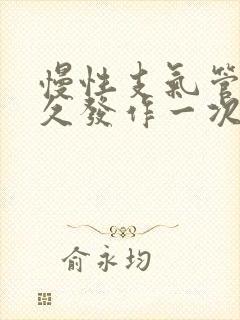 慢性支氣管
久發作一次
俞永均